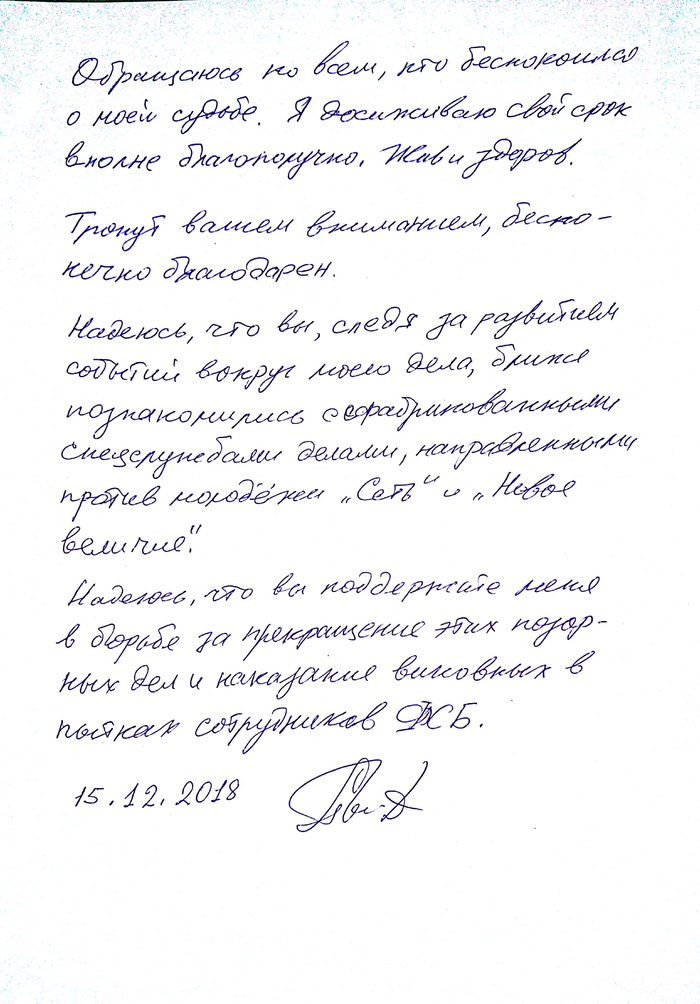 Обращаюсь ко всем, кто беспокоился
о моей судьбе. Я досиживаю свой срок
вполне благополучно. Жив и здоров.
Тронут вашем вниманием, беско-
нечно благодарен.
Надеюсь, что вы, следя за развитием
событий вокруг моего дела, ближе
познакомились с сфабрикованными
спецслужбами делами, направленными
против молодёжи „Сеть“ и „Новое
величие“.
Надеюсь, что вы поддержите меня
в борьбе за прекращение этих позор-
ных дел и наказание виновных в
пытках сотрудников ФСБ.
15.12.2018